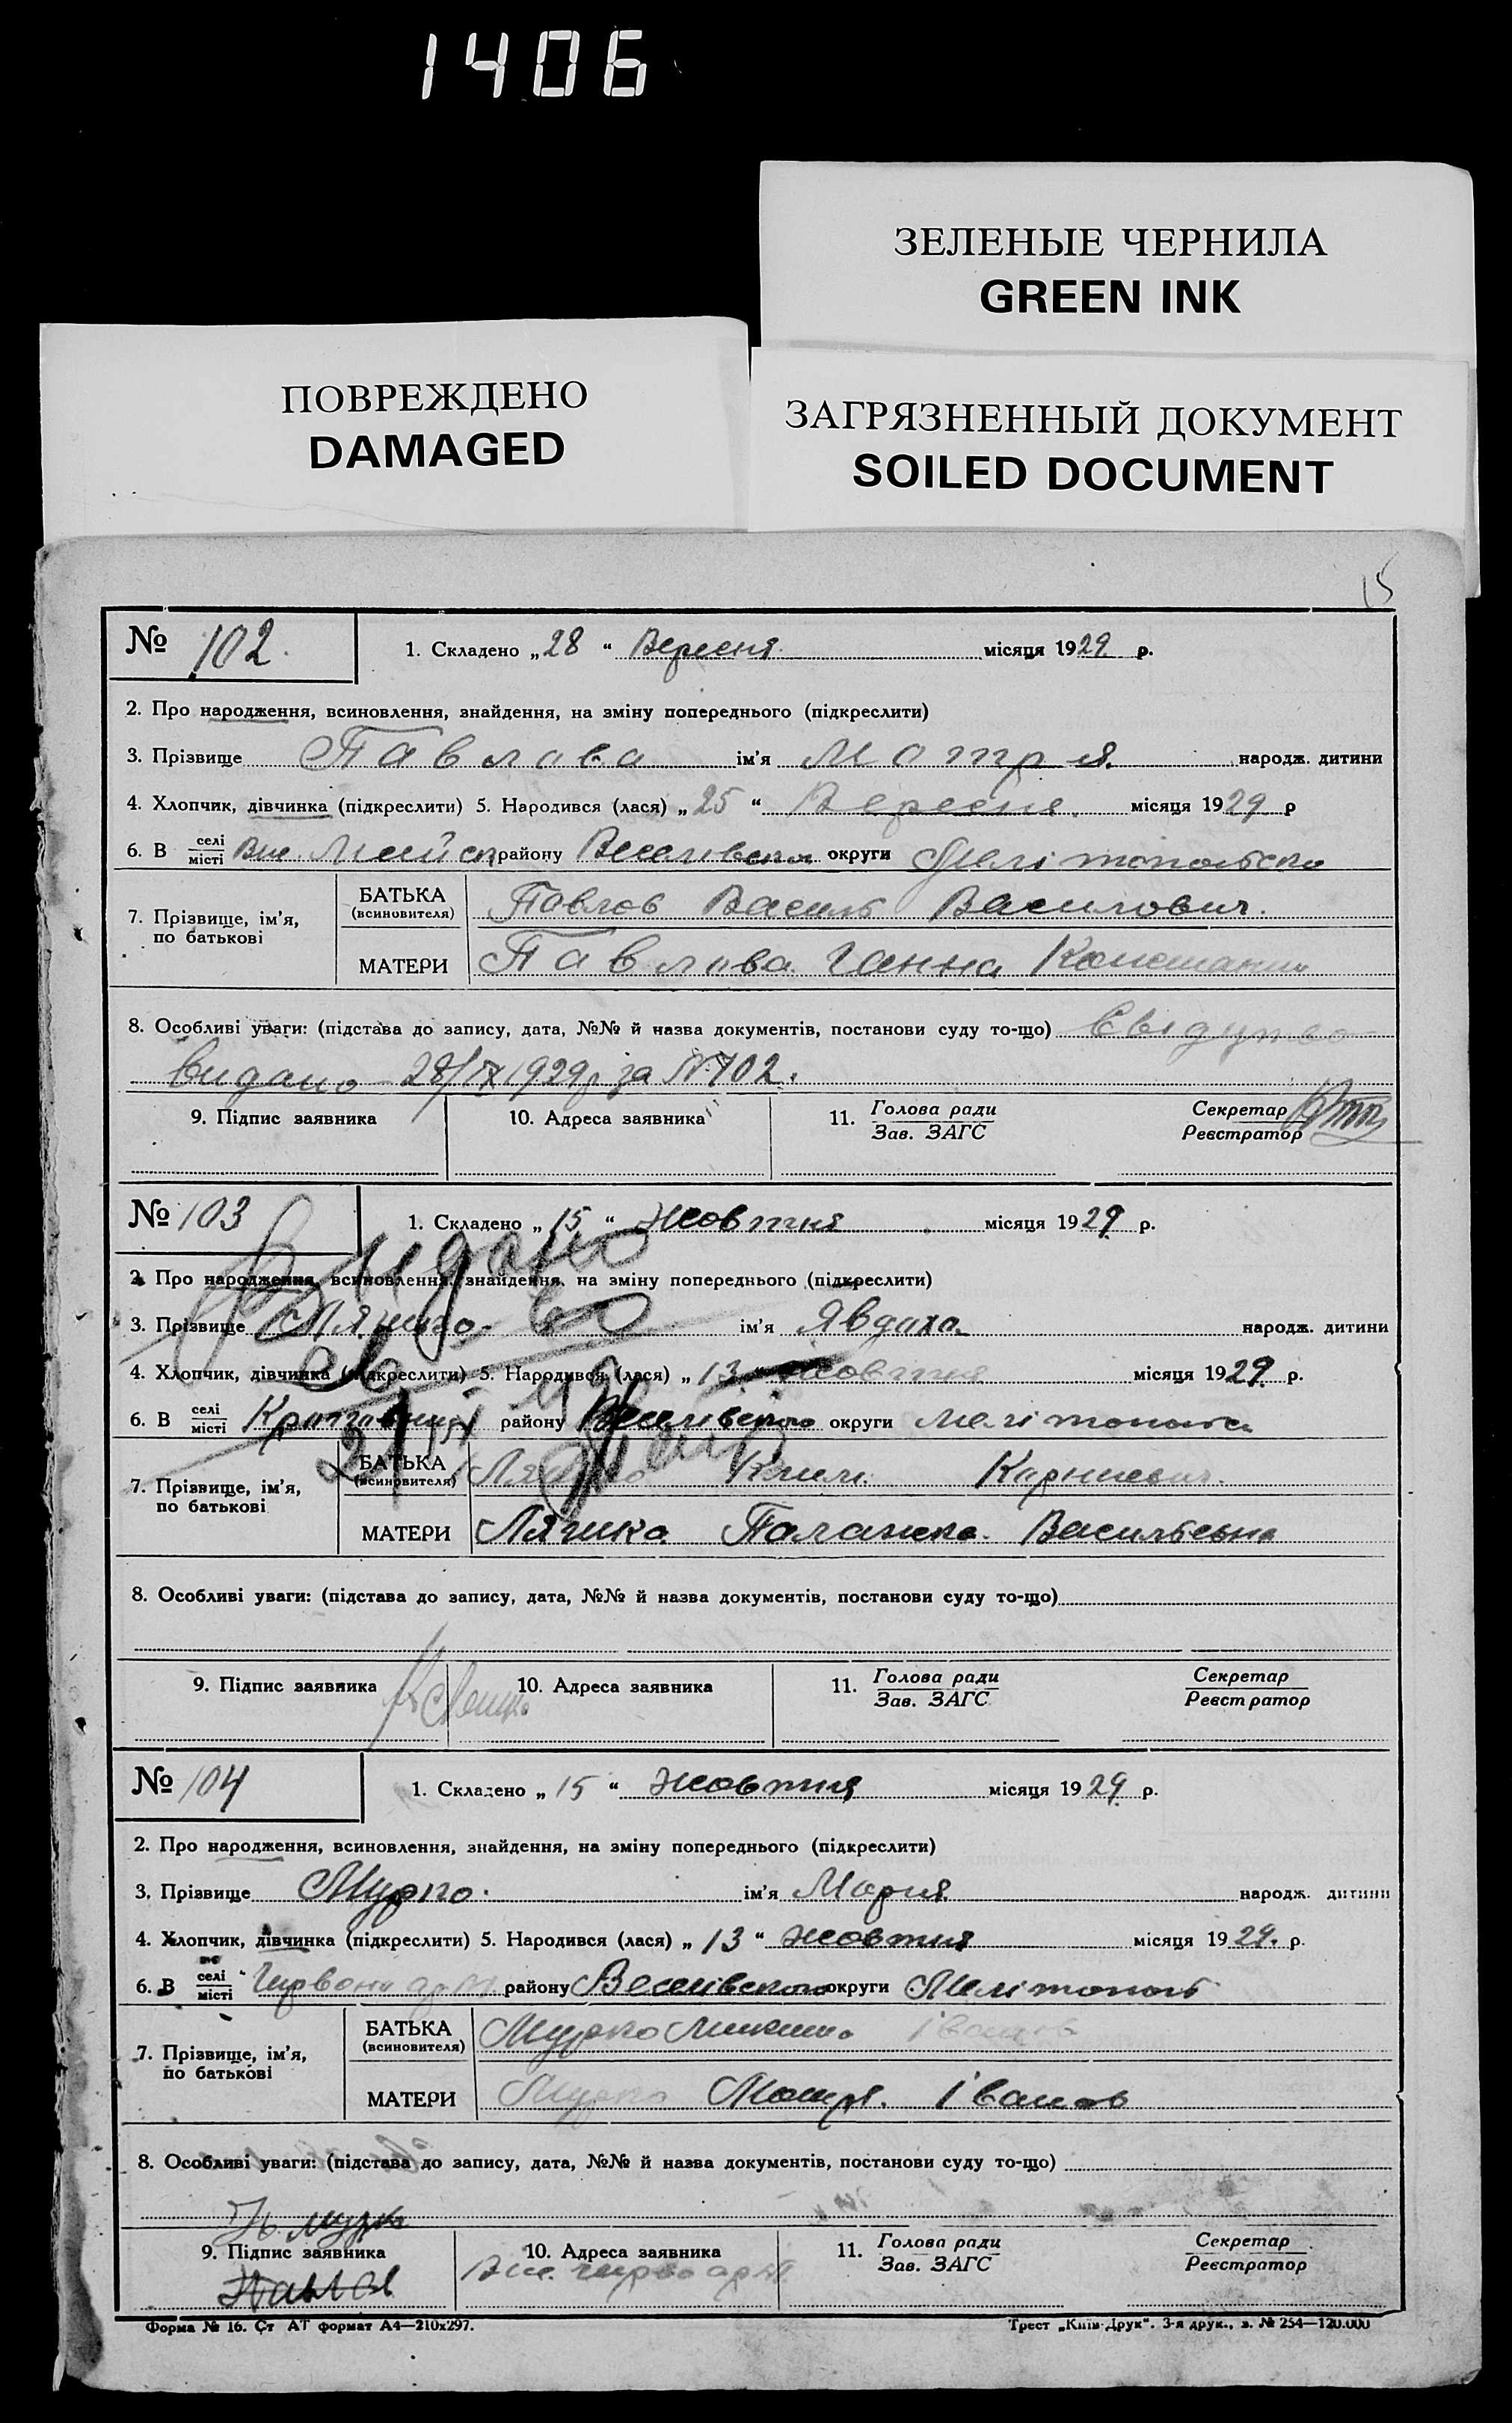 1406
ЗЕЛЕНЫЕ ЧЕРНИЛА
GREEN INK
ПОВРЕЖДЕНО
DAMAGED
ЗАГРЯЗНЕННЫЙ ДОКУМЕНТ
SOILED DOCUMENT
15
№ 102. 1. Складено „28“ Вересня місяця 1929 р.
2. Про народження, всиновлення, знайдення, на зміну попереднього (підкреслити)
3. Прізвище Павлова ім'я Мотря народж. дитини
4. Хлопчик, дівчинка (підкреслити) 5. Народився (лася) „25“ Вересня місяця 1929 р
6. В селі місті району округи
7. Прізвище, ім'я, по батькові БАТЬКА (всиновителя) Павлов Василь Василович.
МАТЕРИ Павлова Ганна
8. Особливі уваги: (підстава до запису, дата, №№ й назва документів, постанови суду то-що)
видано 28/IX 1929р за N 102.
9. Підпис заявника 10. Адреса заявника 11. Голова ради Зав. ЗАГС Секретар Реєстратор
№ 103 1. Складено „15“ Жовтня місяця 1929 р.
Видано
2. Про народження, всиновлення, знайдення, на зміну попереднього (підкреслити)
3. Прізвище Ляшко ім'я Явдоха народж. дитини
4. Хлопчик, дівчинка (підкреслити) 5. Народився (лася) „13“ жовтня місяця 1929 р.
6. В селі місті району Веселівского округи
7. Прізвище, ім'я, по батькові БАТЬКА (всиновителя) Ляшко Клим
МАТЕРИ Ляшко Палажка Васильевна
8. Особливі уваги: (підстава до запису, дата, №№ й назва документів, постанови суду то-що)
9. Підпис заявника 10. Адреса заявника 11. Голова ради Зав. ЗАГС Секретар Реєстратор
№ 104 1. Складено „15“ жовтня місяця 1929 р.
2. Про народження, всиновлення, знайдення, на зміну попереднього (підкреслити)
3. Прізвище Мурко ім'я Мария народж. дитини
4. Хлопчик, дівчинка (підкреслити) 5. Народився (лася) „13“ жовтня місяця 1929. р.
6. В селі місті району Веселівского округи
7. Прізвище, ім'я, по батькові БАТЬКА (всиновителя) Мурко
МАТЕРИ Мурко Мотря Іванов
8. Особливі уваги: (підстава до запису, дата, №№ й назва документів, постанови суду то-що)
9. Підпис заявника 10. Адреса заявника 11. Голова ради Зав. ЗАГС Секретар Реєстратор
Форма № 16. Ст АТ формат А4—210х297. Трест „Київ-Друк“. 3-я друк., з. № 254—120.000